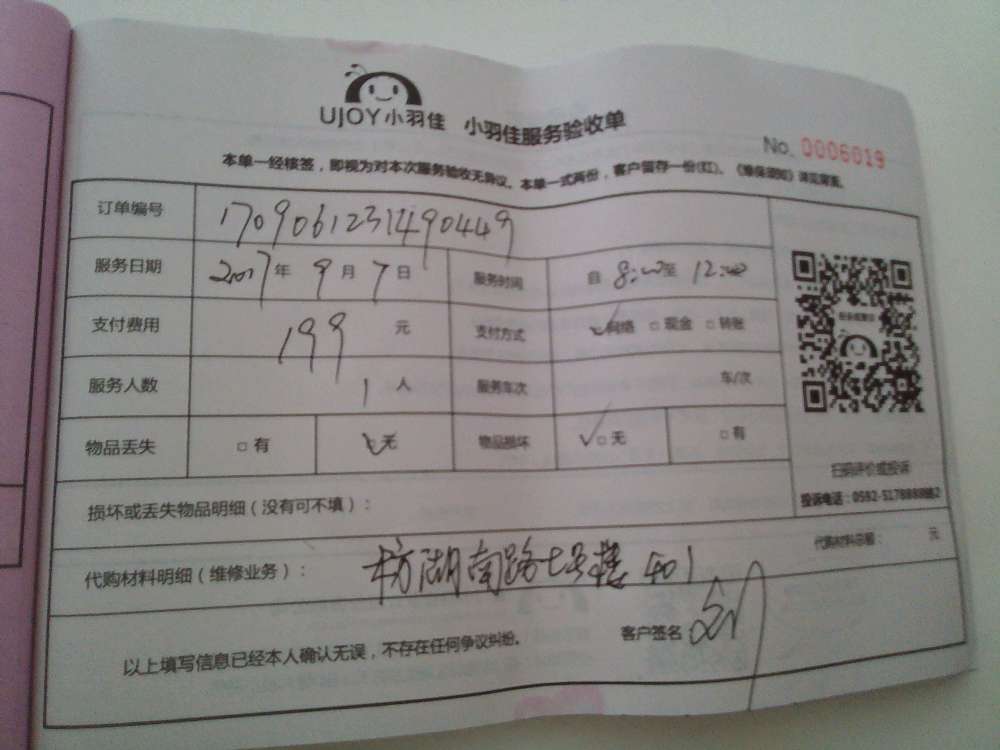 UJOY小羽佳 小羽佳服务验收单
No. 0006019
本单一经核签，即视为对本次服务验收无异议。本单一式两份，客户留存一份(红)、《维保须知》详见背面。
订单编号 17090612314904449
服务日期 2017年 9月 7日 服务时间 自 8:00至 12:00
支付费用 199 元 支付方式 ✓网络 □现金 □转账
服务人数 1人 服务车次 车/次
物品丢失 □有 ✓无 物品损坏 ✓□无 □有
扫码评价或投诉
损坏或丢失物品明细（没有可不填）：
代购材料明细（维修业务）： 枋湖南路七号楼 401
代购材料总额： 元
以上填写信息已经本人确认无误，不存在任何争议纠纷。 客户签名